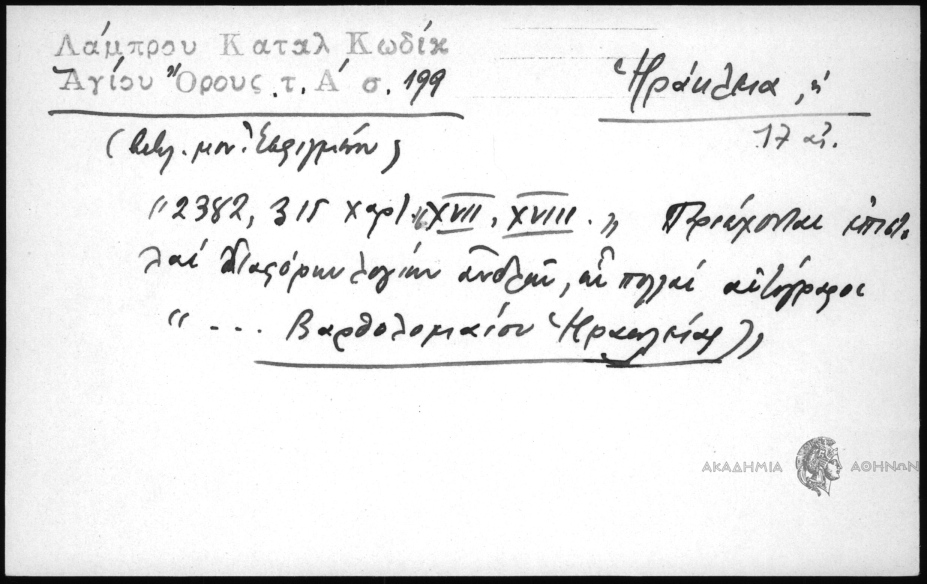 Λάμπρου Καταλ Κωδίκ
Ἁγίου Ὄρους τ. Α΄ σ. 199
Ἡράκλεια, ἡ
17 αἰ.
(βιβλ. μον. Ἐσφιγμένου)
"2382, 315 χαρτ. "XVII, XVIII." Περιέχονται ἐπιστο-
λαὶ διαφόρων λογίων ἀνδρῶν, αἱ πολλαὶ αὐτόγραφοι
" ... Βαρθολομαίου Ἡρακλείας"
ΑΚΑΔΗΜΙΑ ΑΘΗΝΩΝ